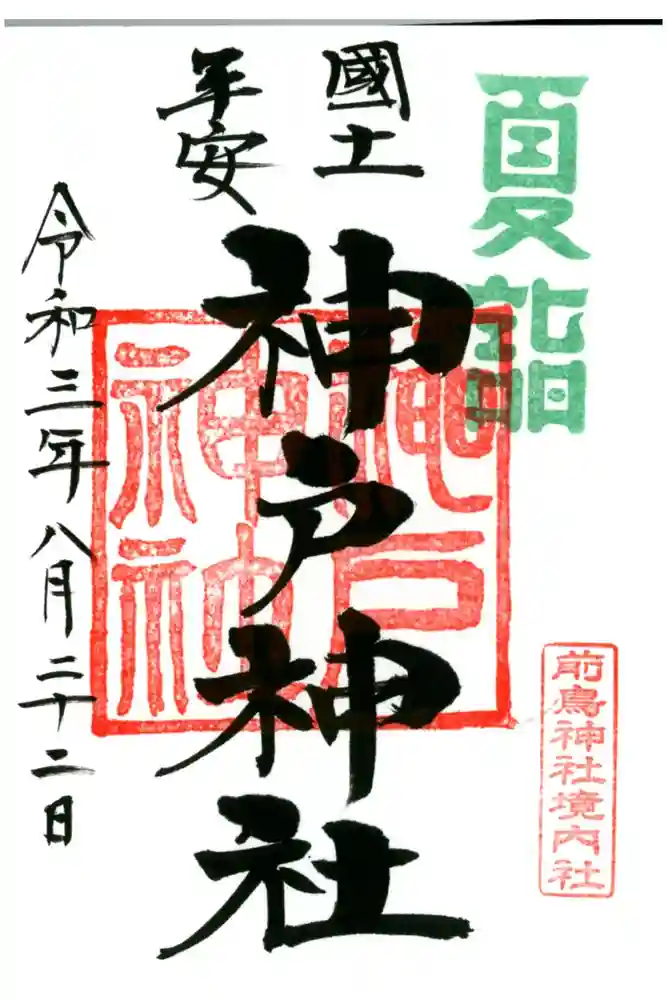 夏詣
前鳥神社境内社
國土
年安
神戸神社
神戸
神社
令和三年八月二十二日